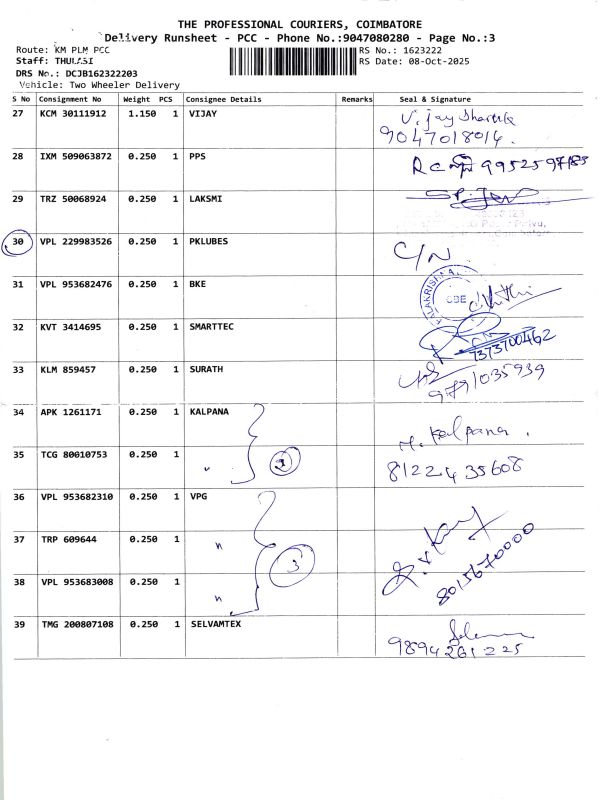 THE PROFESSIONAL COURIERS, COIMBATORE
Delivery Runsheet - PCC - Phone No.:9047080280 - Page No.:3
Route: KM PLM PCC RS No.: 1623222
Staff: THULASI RS Date: 08-Oct-2025
DRS No.: DCJB162322203
Vehicle: Two Wheeler Delivery
S No Consignment No Weight PCS Consignee Details Remarks Seal & Signature
27 KCM 30111912 1.150 1 VIJAY
9047018014.
28 IXM 509063872 0.250 1 PPS
29 TRZ 50068924 0.250 1 LAKSMI
30 VPL 229983526 0.250 1 PKLUBES C/N
31 VPL 953682476 0.250 1 BKE CBE
32 KVT 3414695 0.250 1 SMARTTEC
7373700462
33 KLM 859457 0.250 1 SURATH
9791035939
34 APK 1261171 0.250 1 KALPANA M. Kalpana.
35 TCG 80010753 0.250 1 " 2 8122435608
36 VPL 953682310 0.250 1 VPG
37 TRP 609644 0.250 1 " 3
8015670000
38 VPL 953683008 0.250 1 "
39 TMG 200807108 0.250 1 SELVAMTEX
9894261225